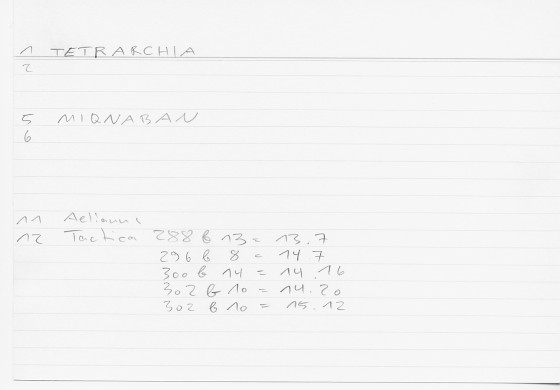 1 TETRARCHIA
2
5 MIQNABAN
6
11 Aelianus
12 Tactica 288 b 13 = 13.7
296 b 8 = 14 7
300 b 14 = 14.16
302 b 10 = 14.20
302 b 10 = 15.12